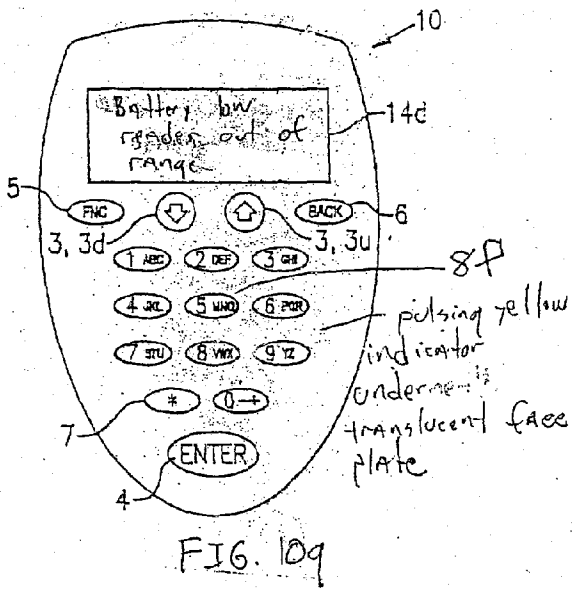 10
Battery low
reader out of
range
14d
5
FNC
BACK
6
3, 3d
3, 3u
1 ABC
2 DEF
3 GHI
8P
4 JKL
5 MNO
6 PQR
pulsing yellow
indicator
7 STU
8 VWX
9 YZ
translucent face
plate
7
*
0
ENTER
4
FIG. 10q